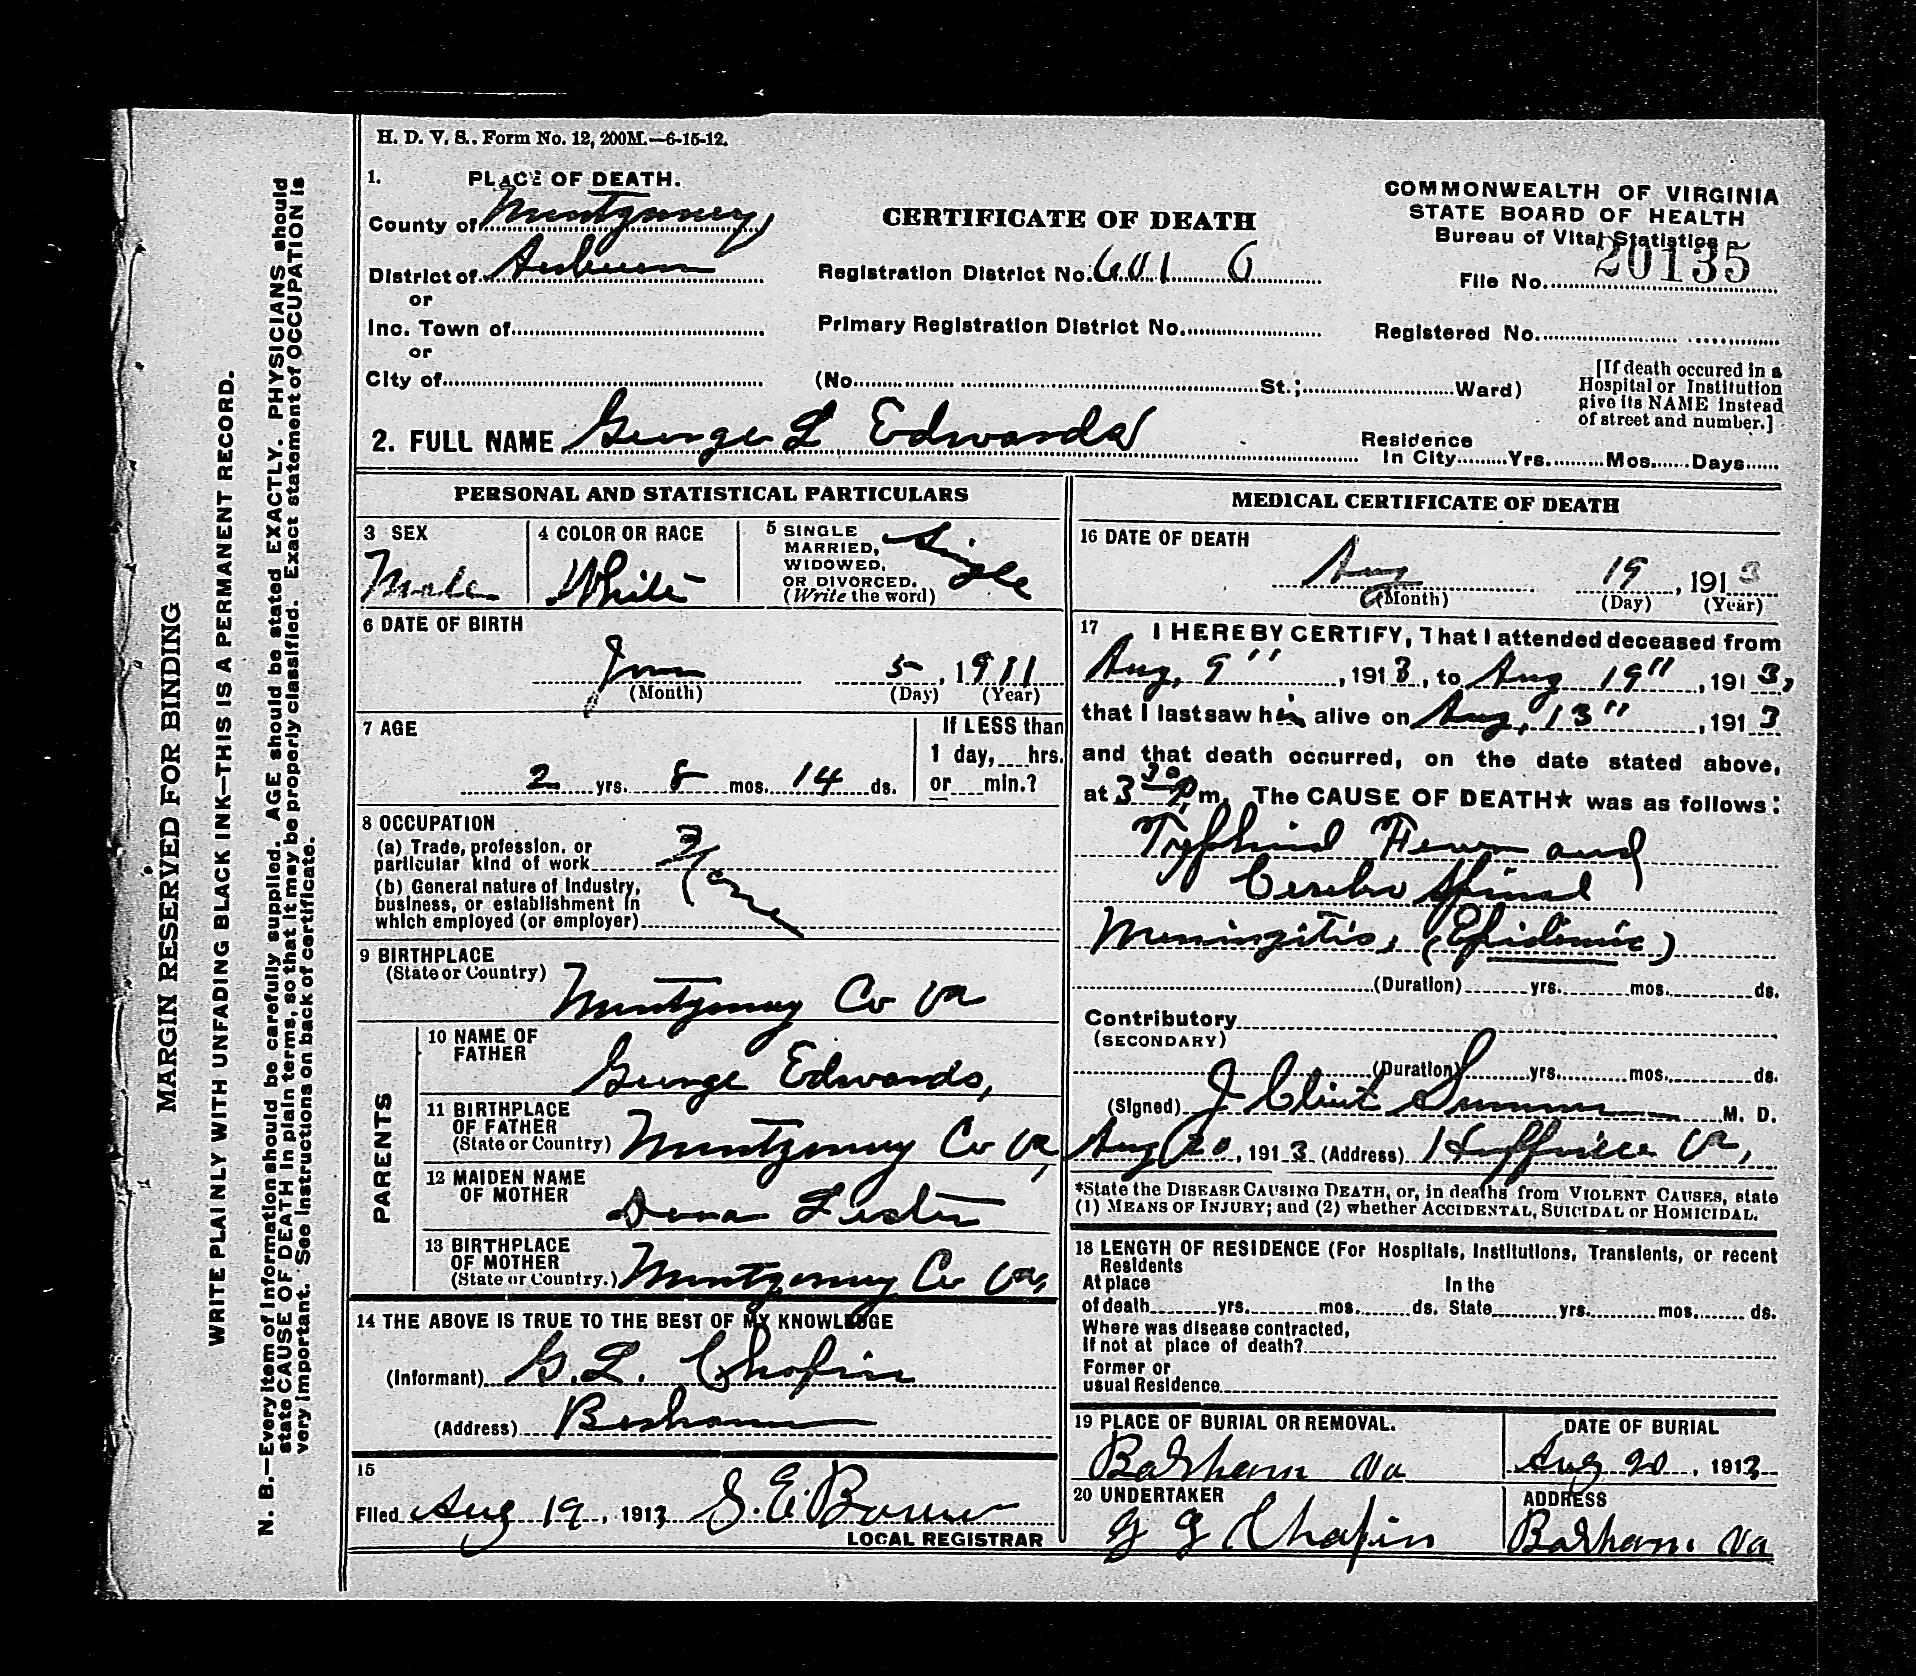 H. D. V. S.. Form No. 12, 200M.—6-15-12.
1. PLACE OF DEATH.
County of Montgomery
District of Auburn
or
Inc. Town of
or
City of
CERTIFICATE OF DEATH
Registration District No. 601 6
Primary Registration District No.
(No. St.; Ward)
COMMONWEALTH OF VIRGINIA
STATE BOARD OF HEALTH
Bureau of Vital Statistics
File No. 20135
Registered No.
[If death occured in a
Hospital or Institution
give its NAME instead
of street and number.]
2. FULL NAME George L Edwards
Residence
In City Yrs. Mos. Days
PERSONAL AND STATISTICAL PARTICULARS
3 SEX
Male
4 COLOR OR RACE
White
5 SINGLE
MARRIED,
WIDOWED,
OR DIVORCED.
(Write the word)
Single
6 DATE OF BIRTH
5, 1911
(Month) (Day) (Year)
7 AGE
2 yrs. 8 mos. 14 ds.
If LESS than
1 day, hrs.
or min.?
8 OCCUPATION
(a) Trade, profession, or
particular kind of work
(b) General nature of Industry,
business, or establishment in
which employed (or employer)
9 BIRTHPLACE
(State or Country)
Montgomery Co Va
PARENTS
10 NAME OF
FATHER
George Edwards,
11 BIRTHPLACE
OF FATHER
(State or Country) Montgomery Co Va,
12 MAIDEN NAME
OF MOTHER
Dona Lester
13 BIRTHPLACE
OF MOTHER
(State or Country.) Montgomery Co Va,
14 THE ABOVE IS TRUE TO THE BEST OF MY KNOWLEDGE
(Informant) G. L. Chafin
(Address)
15
Filed Aug 19, 1913 S. E.
LOCAL REGISTRAR
MEDICAL CERTIFICATE OF DEATH
16 DATE OF DEATH
Aug 19, 1913
(Month) (Day) (Year)
17 I HEREBY CERTIFY, That I attended deceased from
Aug, 9", 1913, to Aug 19", 1913,
that I last saw him alive on Aug, 13", 1913
and that death occurred, on the date stated above,
at 3 30 P m. The CAUSE OF DEATH★ was as follows:
Typhoid Fever and
Cerebro Spinal
Meningitis, (Epidemic)
(Duration) yrs. mos. ds.
Contributory
(SECONDARY)
(Duration) yrs. mos. ds.
(Signed) J Clint M. D.
Aug 20, 1913 (Address) Huffville Va,
*State the DISEASE CAUSING DEATH, or, in deaths from VIOLENT CAUSES, state
(1) MEANS OF INJURY; and (2) whether ACCIDENTAL, SUICIDAL or HOMICIDAL.
18 LENGTH OF RESIDENCE (For Hospitals, Institutions, Transients, or recent
Residents
At place In the
of death yrs. mos. ds. State yrs. mos. ds.
Where was disease contracted,
If not at place of death?
Former or
usual Residence
19 PLACE OF BURIAL OR REMOVAL.
Basham Va
DATE OF BURIAL
Aug 20, 1913
20 UNDERTAKER
G G Chafin
ADDRESS
Basham. Va
MARGIN RESERVED FOR BINDING
WRITE PLAINLY WITH UNFADING BLACK INK—THIS IS A PERMANENT RECORD.
N. B.—Every item of information should be carefully supplied. AGE should be stated EXACTLY. PHYSICIANS should
state CAUSE OF DEATH in plain terms, so that it may be properly classified. Exact statement of OCCUPATION is
very important. See instructions on back of certificate.